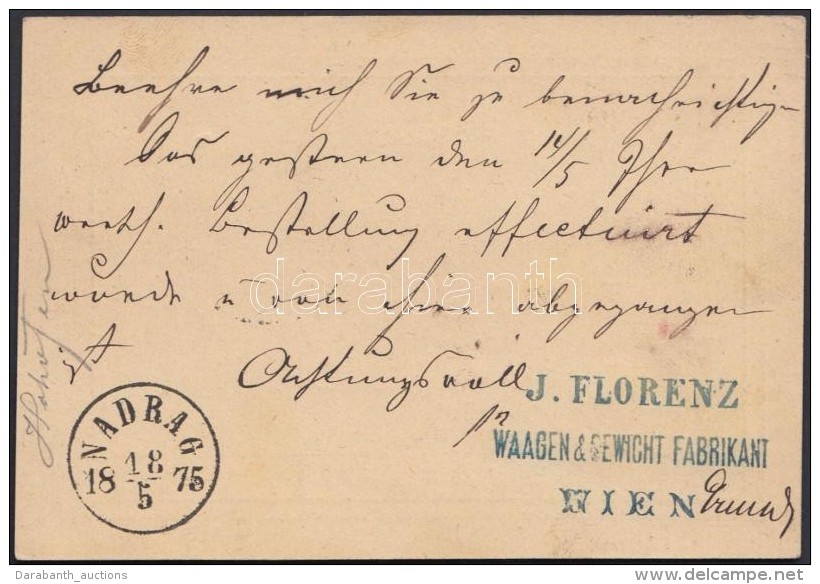 Beehre mich Sie zu benachrichtigen
Das gestern den 14/5 Ihre
werth. Bestellung effectuirt
wurde u von hier abgegangen
ist
Achtungsvoll
J. FLORENZ
WAAGEN & GEWICHT FABRIKANT
WIEN
NADRAG
18 18/5 75
darabanth
Darabanth_auctions
http://www.delcampe.net